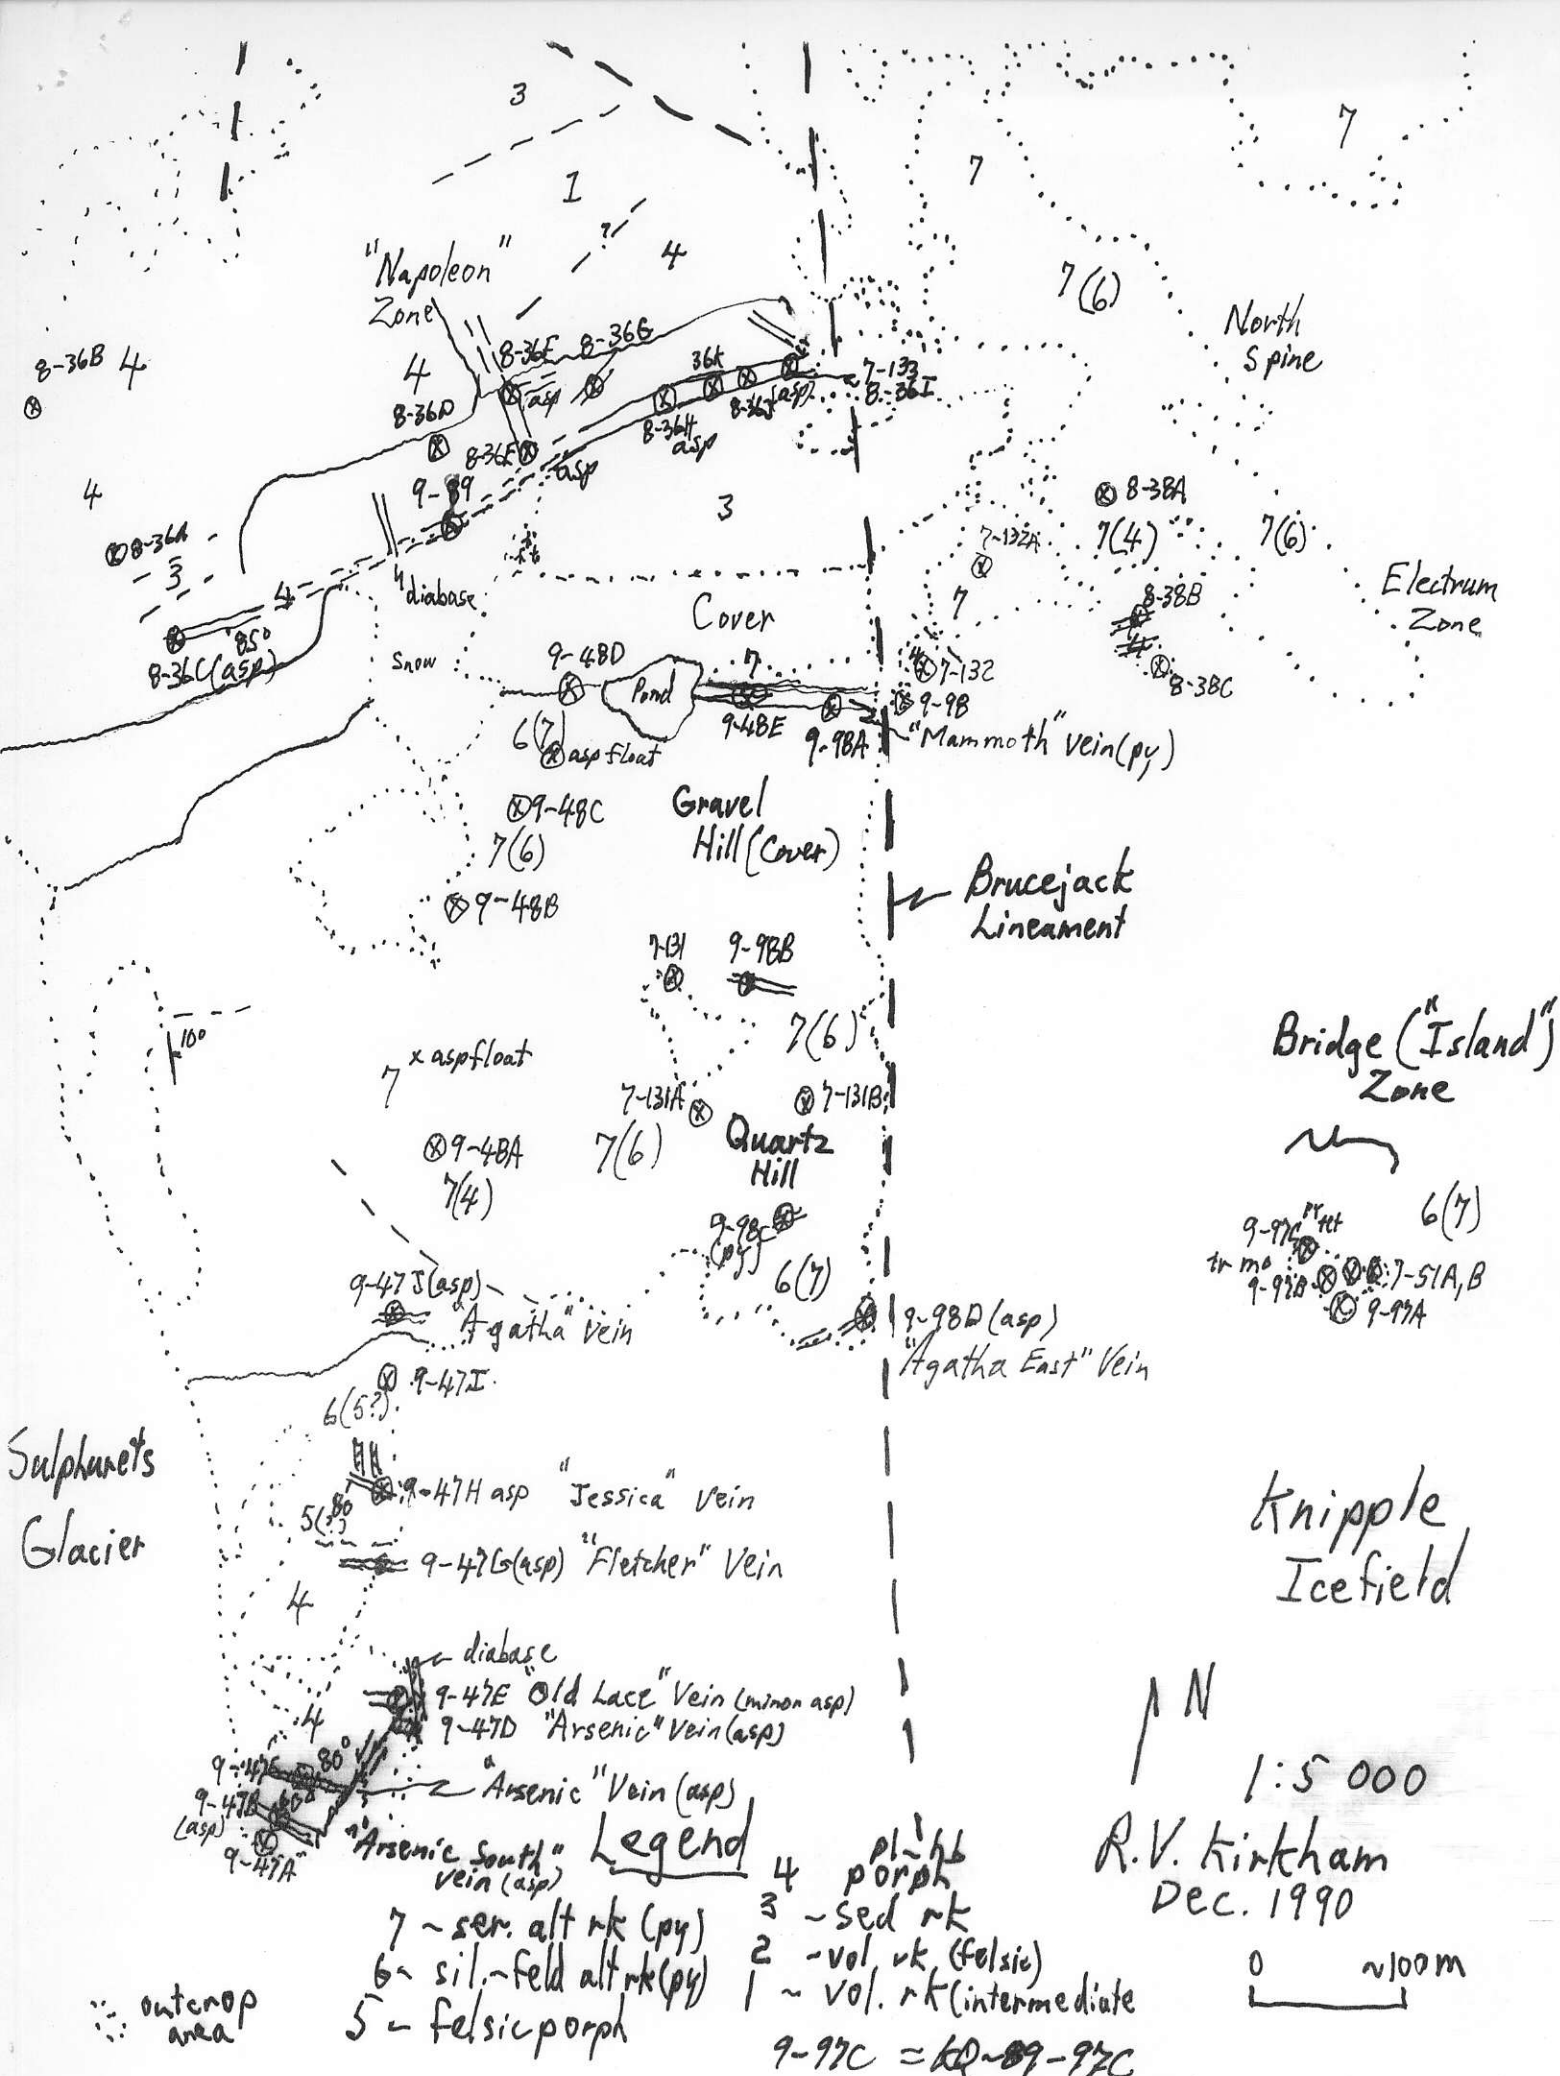 3
7
7
1
4
"Napoleon"
Zone
7(6)
North
Spine
8-36B 4
4
8-36F 8-36G
asp
36K
7-133
8-36I
8-36D
8-36J (asp)
8-36H
asp
8-36E
asp
4
9-89
3
8-38A
7(4)
7(6)
8-36A
3
7-132A
4
diabase
7
8-38B
Electrum
Zone
85°
8-36C (asp)
Snow
Cover
9-48D
Pond
7
7-132
8-38C
9-98
9-48E
9-98A
"Mammoth" vein (py)
6(7)
asp float
9-48C
7(6)
Gravel
Hill (Cover)
9-48B
Brucejack
Lineament
7-131
9-98B
10°
7(6)
Bridge ("Island")
Zone
7
x asp float
7-131A
7-131B
9-48A
7(4)
7(6)
Quartz
Hill
9-98C
(py)
6(7)
6(7)
9-97C
tet
tr mo
9-97B
7-51A,B
9-97A
9-47J (asp)
"Agatha" vein
9-98D (asp)
"Agatha East" Vein
9-47I
6(5?)
Sulphurets
Glacier
9-47H asp "Jessica" vein
80
5(?)
9-47G (asp) "Fletcher" Vein
Knipple
Icefield
4
diabase
9-47E "Old Lace" Vein (minor asp)
9-47D "Arsenic" Vein (asp)
4
80°
9-47C
60°
9-47B
(asp)
"Arsenic" Vein (asp)
9-47A
"Arsenic South"
vein (asp)
N
1:5 000
R.V. Kirkham
Dec. 1990
0 ~100m
Legend
7 ~ ser. alt rk (py)
6 ~ sil.-feld alt rk (py)
5 ~ felsic porph
4 pl-hb
porph
3 ~ sed rk
2 ~ vol. rk (felsic)
1 ~ vol. rk (intermediate
outcrop
area
9-97C = KQ-89-97C